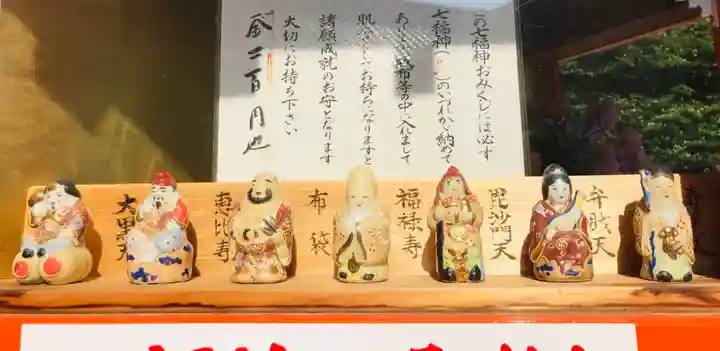 この七福神おみくじには必ず
七福神(
)のいづれかが納めて
あります
布等の中に入れまして
肌
してお持ちになりますと
諸願成就のお守となります
大切にお持ち下さい
金二百円也
大黒天
恵比寿
布袋
福禄寿
毘沙門天
弁財天